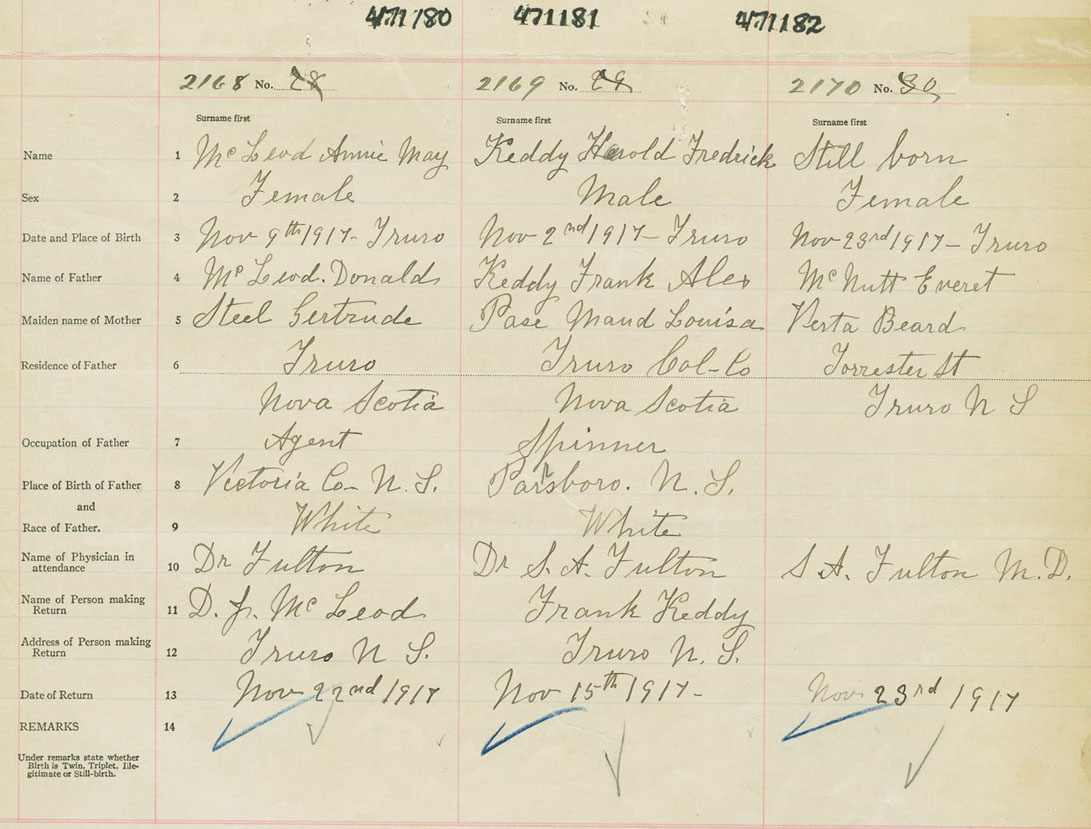 471180 471181 471182
2168 No. 28 2169 No. 29 2170 No. 30
Surname first Surname first Surname first
Name 1 Mc Leod Annie May Keddy Harold Fredrick Still born
Sex 2 Female Male Female
Date and Place of Birth 3 Nov 9th 1917- Truro Nov 2nd 1917- Truro Nov 23rd 1917- Truro
Name of Father 4 Mc Leod. Donald Keddy Frank Alex McNutt Everet
Maiden name of Mother 5 Steel Gertrude Pase Maud Louisa Verta Beard
Residence of Father 6 Truro Truro Col-Co Forrester St
Nova Scotia Nova Scotia Truro N S
Occupation of Father 7 Agent Spinner
Place of Birth of Father 8 Victoria Co- N. S. Parsboro. N. S.
and
Race of Father. 9 White White
Name of Physician in
attendance 10 Dr Fulton Dr S. A. Fulton S A. Fulton M.D.
Name of Person making
Return 11 D. J. Mc Leod Frank Keddy
Address of Person making
Return 12 Truro N S. Truro N. S.
Date of Return 13 Nov 22nd 1917 Nov 15th 1917- Nov 23rd 1917
REMARKS 14
Under remarks state whether
Birth is Twin, Triplet, Ille-
gitimate or Still-birth.